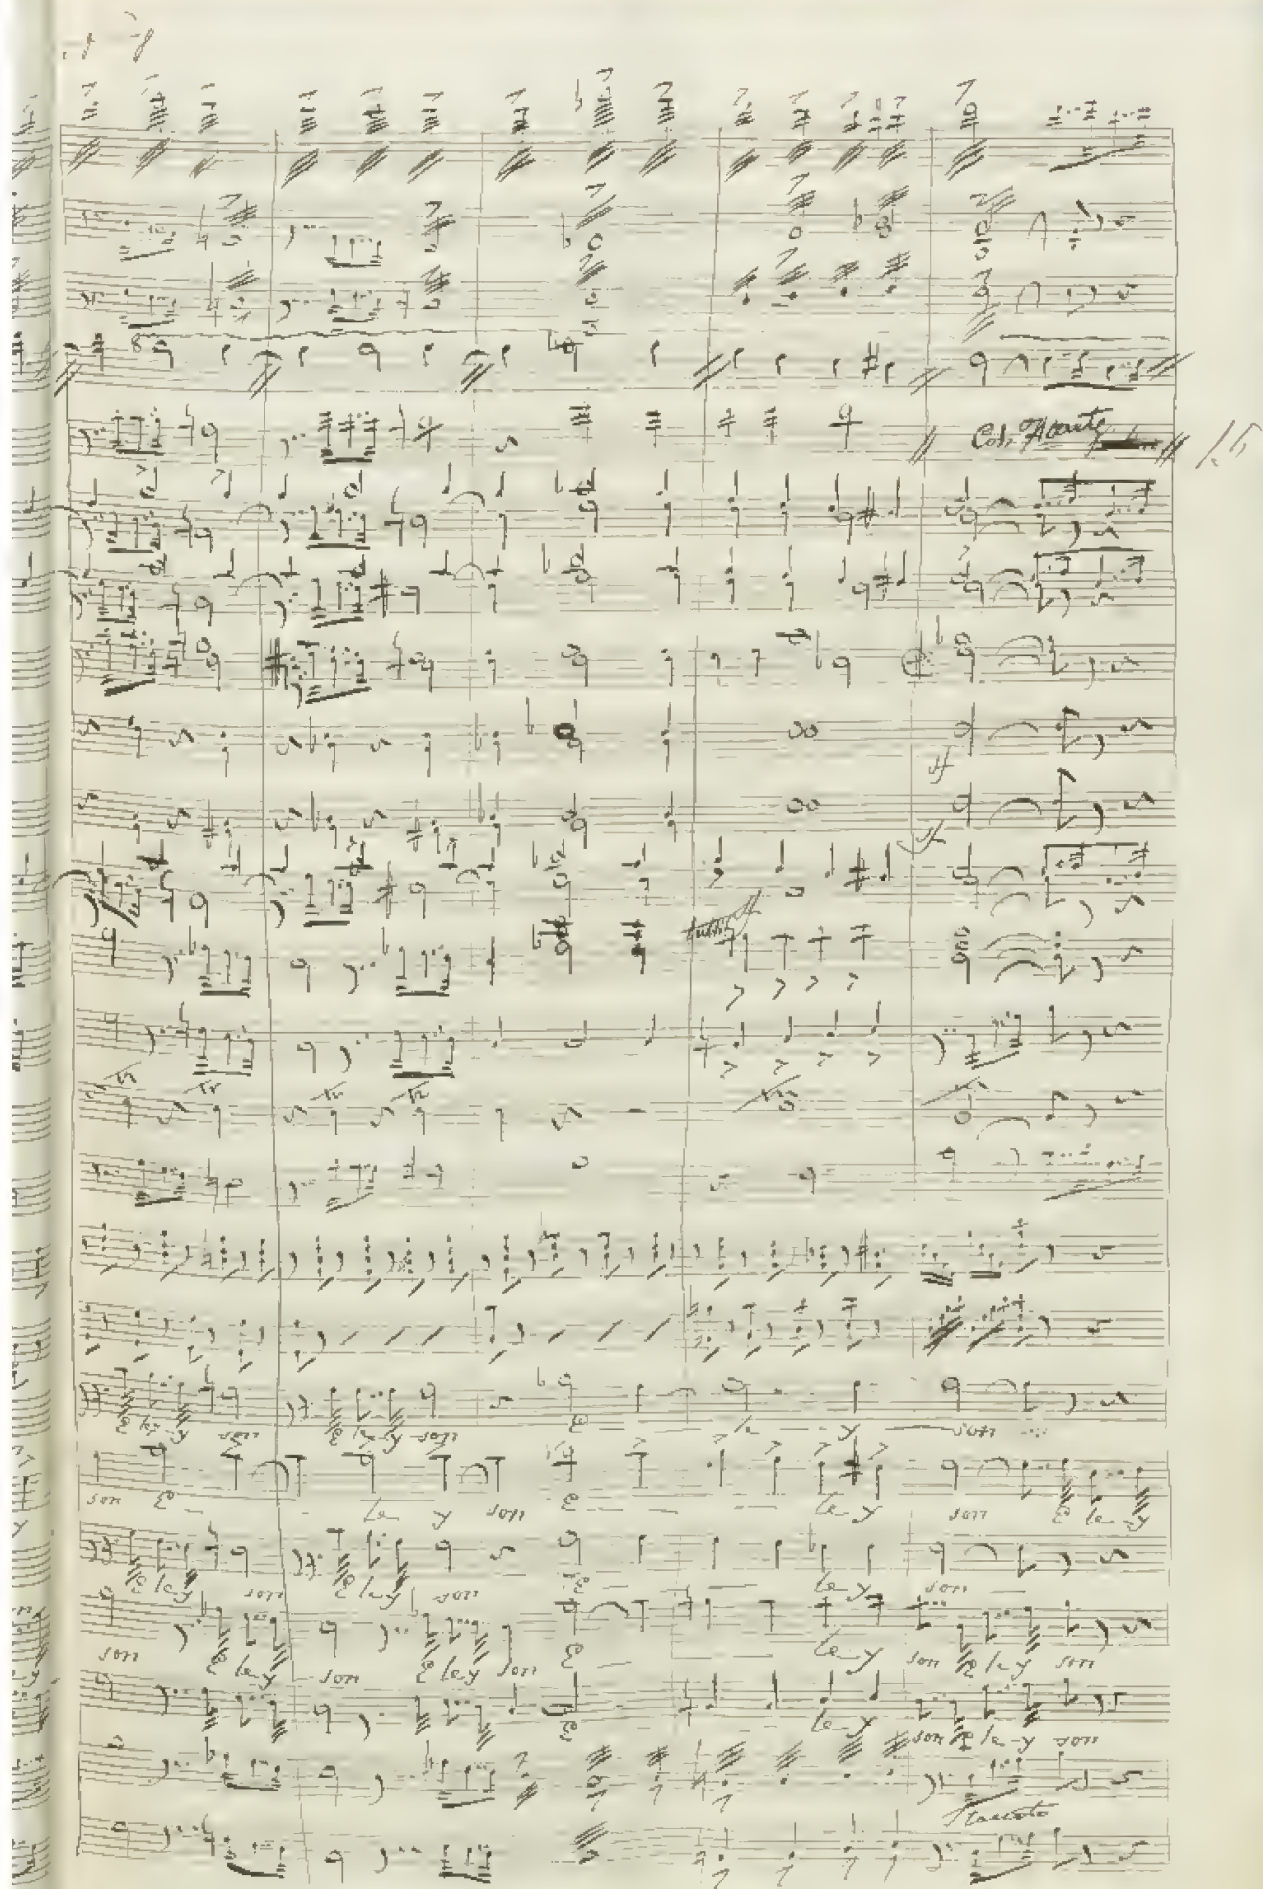 8ª
Col. Flauto
15
sf
sf
tutti ff
E le y son E le y son E le y son
son E le y son E le y son E le y
E le y son E le y son E le y son
son E le y son E le y son E le y son E le y son
E le y son E le y son
Staccato